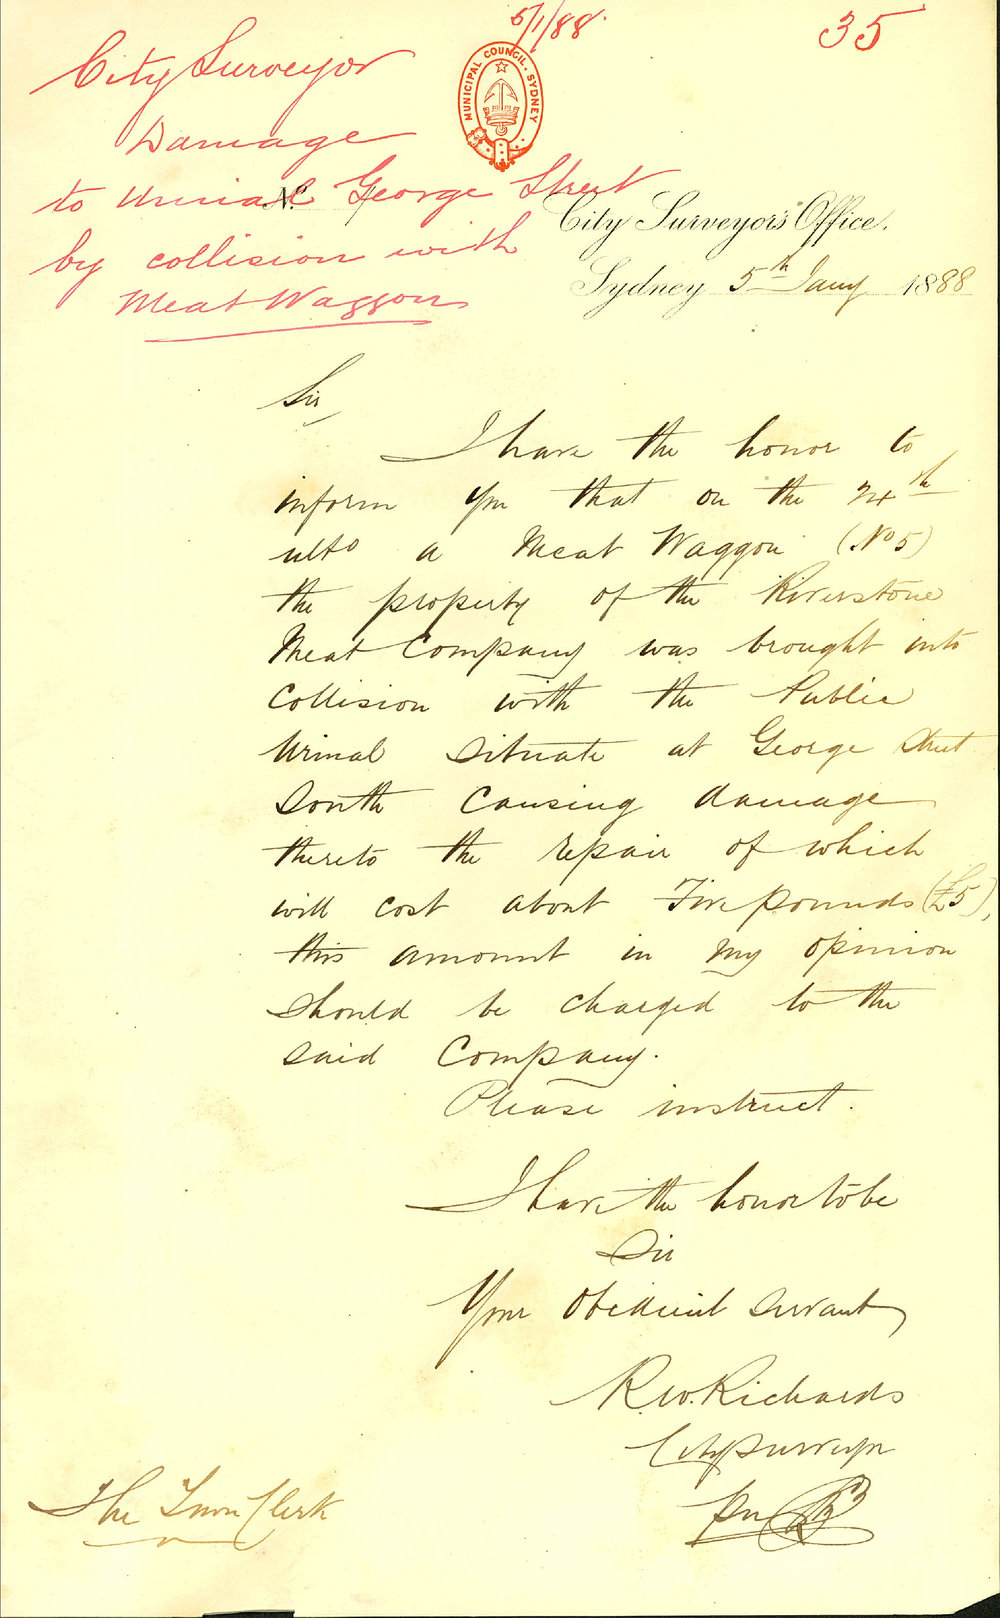 5/1/88
35
MUNICIPAL COUNCIL. SYDNEY
City Surveyor
Damage
to Urinal George Street
by collision with
Meat Waggon
No.
City Surveyor's Office.
Sydney 5th Jany 1888
Sir,
I have the honor to
inform you that on the 24th
ulto a Meat Waggon (No 5)
the property of the Riverstone
Meat Company was brought into
Collision with the Public
Urinal Situate at George Street
South Causing damage
thereto the repair of which
will cost about Five pounds (£5),
this amount in my opinion
should be charged to the
said Company.
Please instruct.
I have the honor to be
Sir
Your Obedient Servant
R.W. Richards
City Surveyor
The Town Clerk